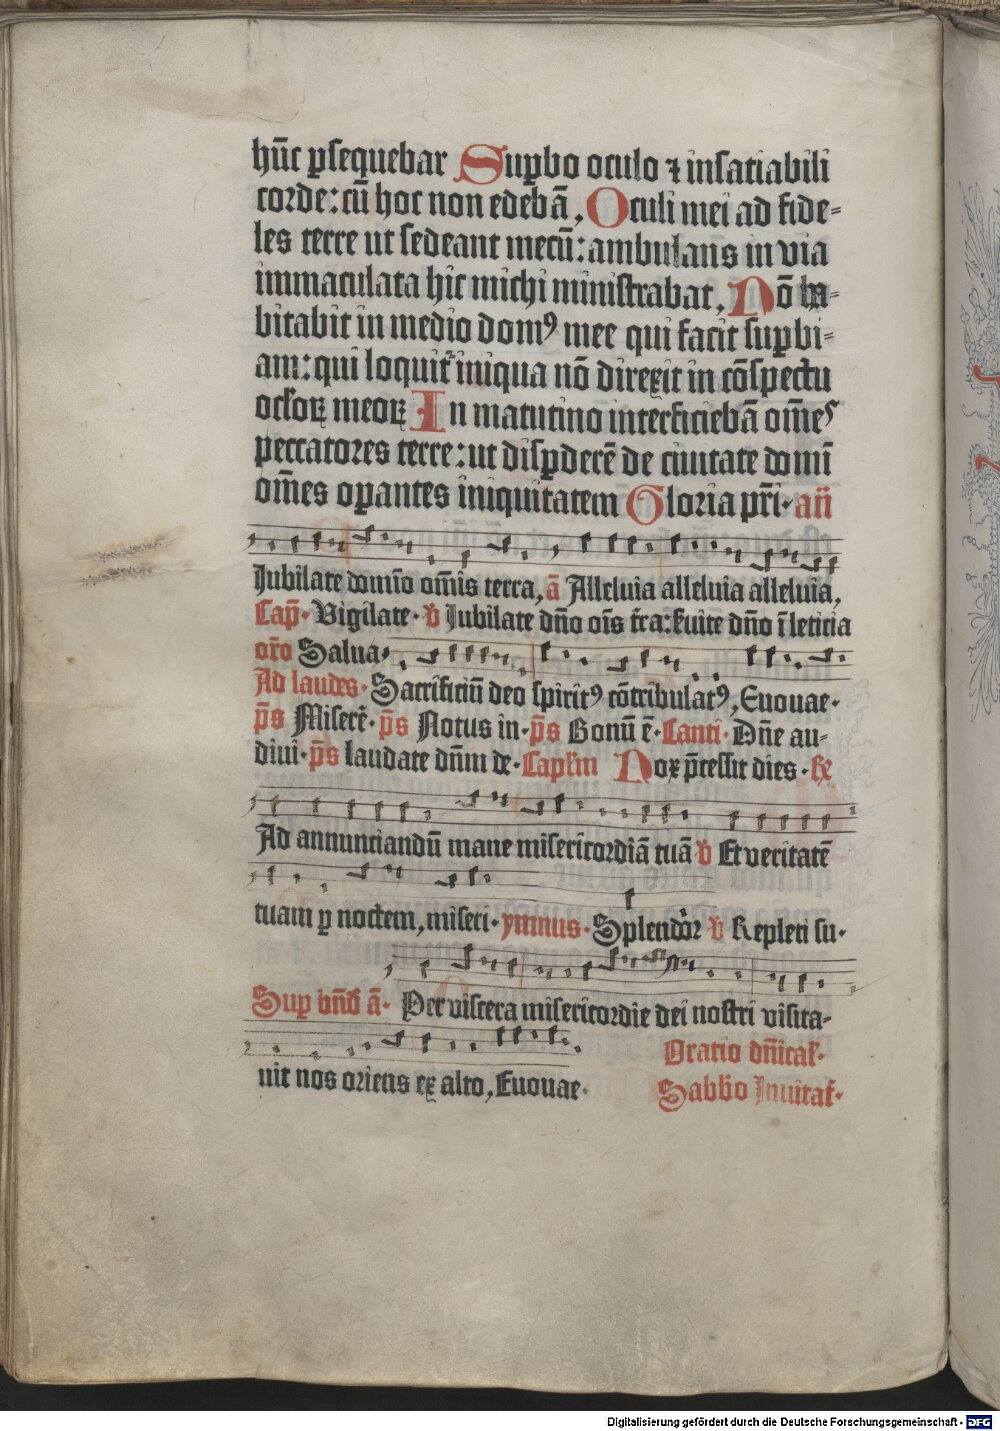 hūc ꝑsequebar Suꝑbo oculo ⁊ insatiabili
corde: cū hoc non edebā, Oculi mei ad fide-
les terre ut sedeant mecū: ambulans in via
immaculata hic michi ministrabat, Nō ha-
bitabit in medio domꝰ mee qui facit suꝑbi-
am: qui loquit᷑ iniqua nō direxit in cōspectu
ocl̓oꝝ meoꝝ In matutino interficiebā om̄es
peccatores terre: ut disꝑderē de ciuitate domī
om̄es oꝑantes iniquitatem Gloria pr̄i· an̄
Jubilate domīo om̄is terra, ā Alleluia alleluia alleluia,
Cap̄· Vigilate· v Jubilate dn̄o oīs t̄ra: s̓uite dn̄o ī leticia
or̄o Salua·
Ad laudes· Sacrificiū deo spiritꝰ cōtribulatꝰ, Euouae·
p̄s Miserē· p̄s Notus in· p̄s Bonū ē· Canti· Dn̄e au-
diui· p̄s laudate dn̄m de· Capl̓m Nox p̄cessit dies· ℞
Ad annunciandū mane misericordiā tuā v Et veritatē
tuam ꝑ noctem, miseri· ymnus· Splendor v Repleti su·
Suꝑ bn̄d̄ ā· Per viscera misericordie dei nostri visita-
uit nos oriens ex alto, Euouae·
Oratio dn̄ical̓·
Sabb̄o Inuitat̓·
Digitalisierung gefördert durch die Deutsche Forschungsgemeinschaft - DFG